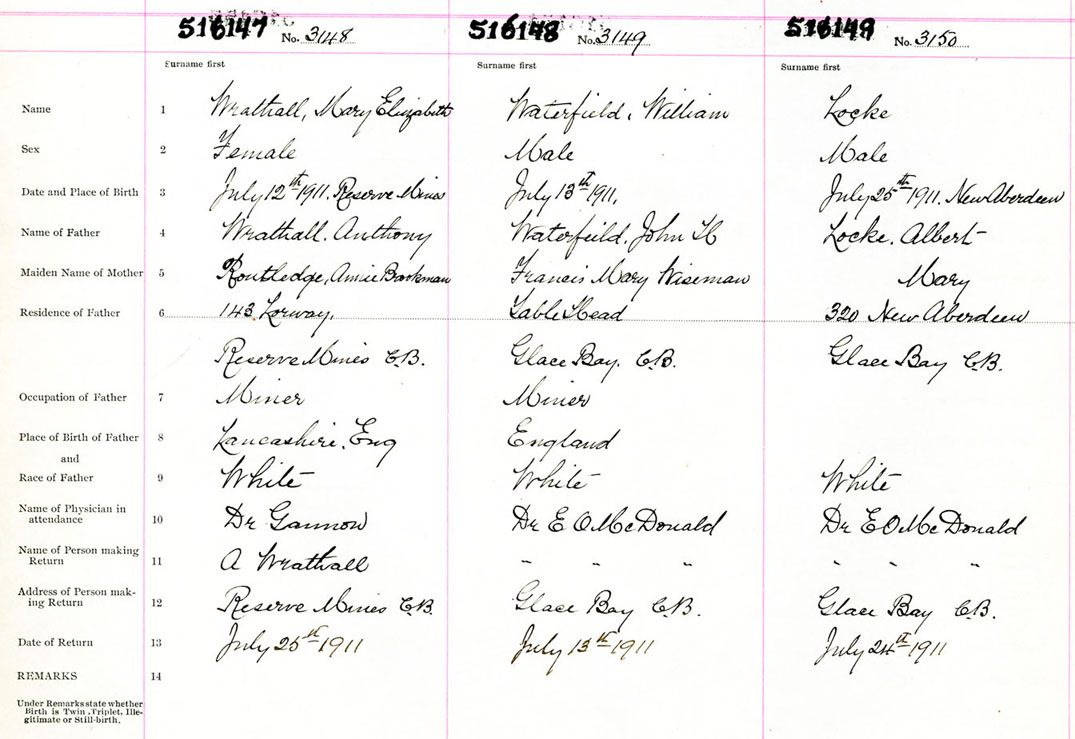 516147 No. 3148 516148 No. 3149 516149 No. 3150
Surname first Surname first Surname first
Name 1 Wrathall, Mary Elizabeth Waterfield, William Locke
Sex 2 Female Male Male
Date and Place of Birth 3 July 12th 1911. Reserve Mines July 13th 1911. July 25th 1911. New Aberdeen
Name of Father 4 Wrathall. Anthony Waterfeild, John H Locke. Albert
Maiden Name of Mother 5 Routledge, Annie Francis Mary Wiseman Mary
Residence of Father 6 143. Lorway, Table Head 320 New Aberdeen
Reserve Mines C.B. Glace Bay. C.B. Glace Bay C.B.
Occupation of Father 7 Miner Miner
Place of Birth of Father 8 Lancashire. Eng England
and
Race of Father 9 White White White
Name of Physician in
attendance 10 Dr Gannow Dr E O McDonald Dr E O McDonald
Name of Person making
Return 11 A Wrathall " " " " " "
Address of Person mak-
ing Return 12 Reserve Mines C.B. Glace Bay C.B. Glace Bay C.B.
Date of Return 13 July 25st 1911 July 13th 1911 July 24th 1911
REMARKS 14
Under Remarks state whether
Birth is Twin, Triplet, Ille-
gitimate or Still-birth.